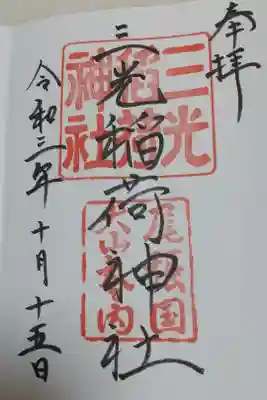 奉拝
三光稲荷神社
三光
稲荷
神社
尾張国
犬山城内
令和三年十月十五日